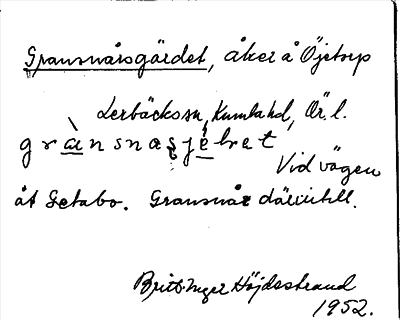 Gransnårsgärdet, åker å Öjetorp
Lerbäcks sn, Kumla hd, Ör. l.
grànsnasjèlret
Vid vägen
åt Getabo. Gransnår därintill.
Britt-Inger Höjdestrand
1952.